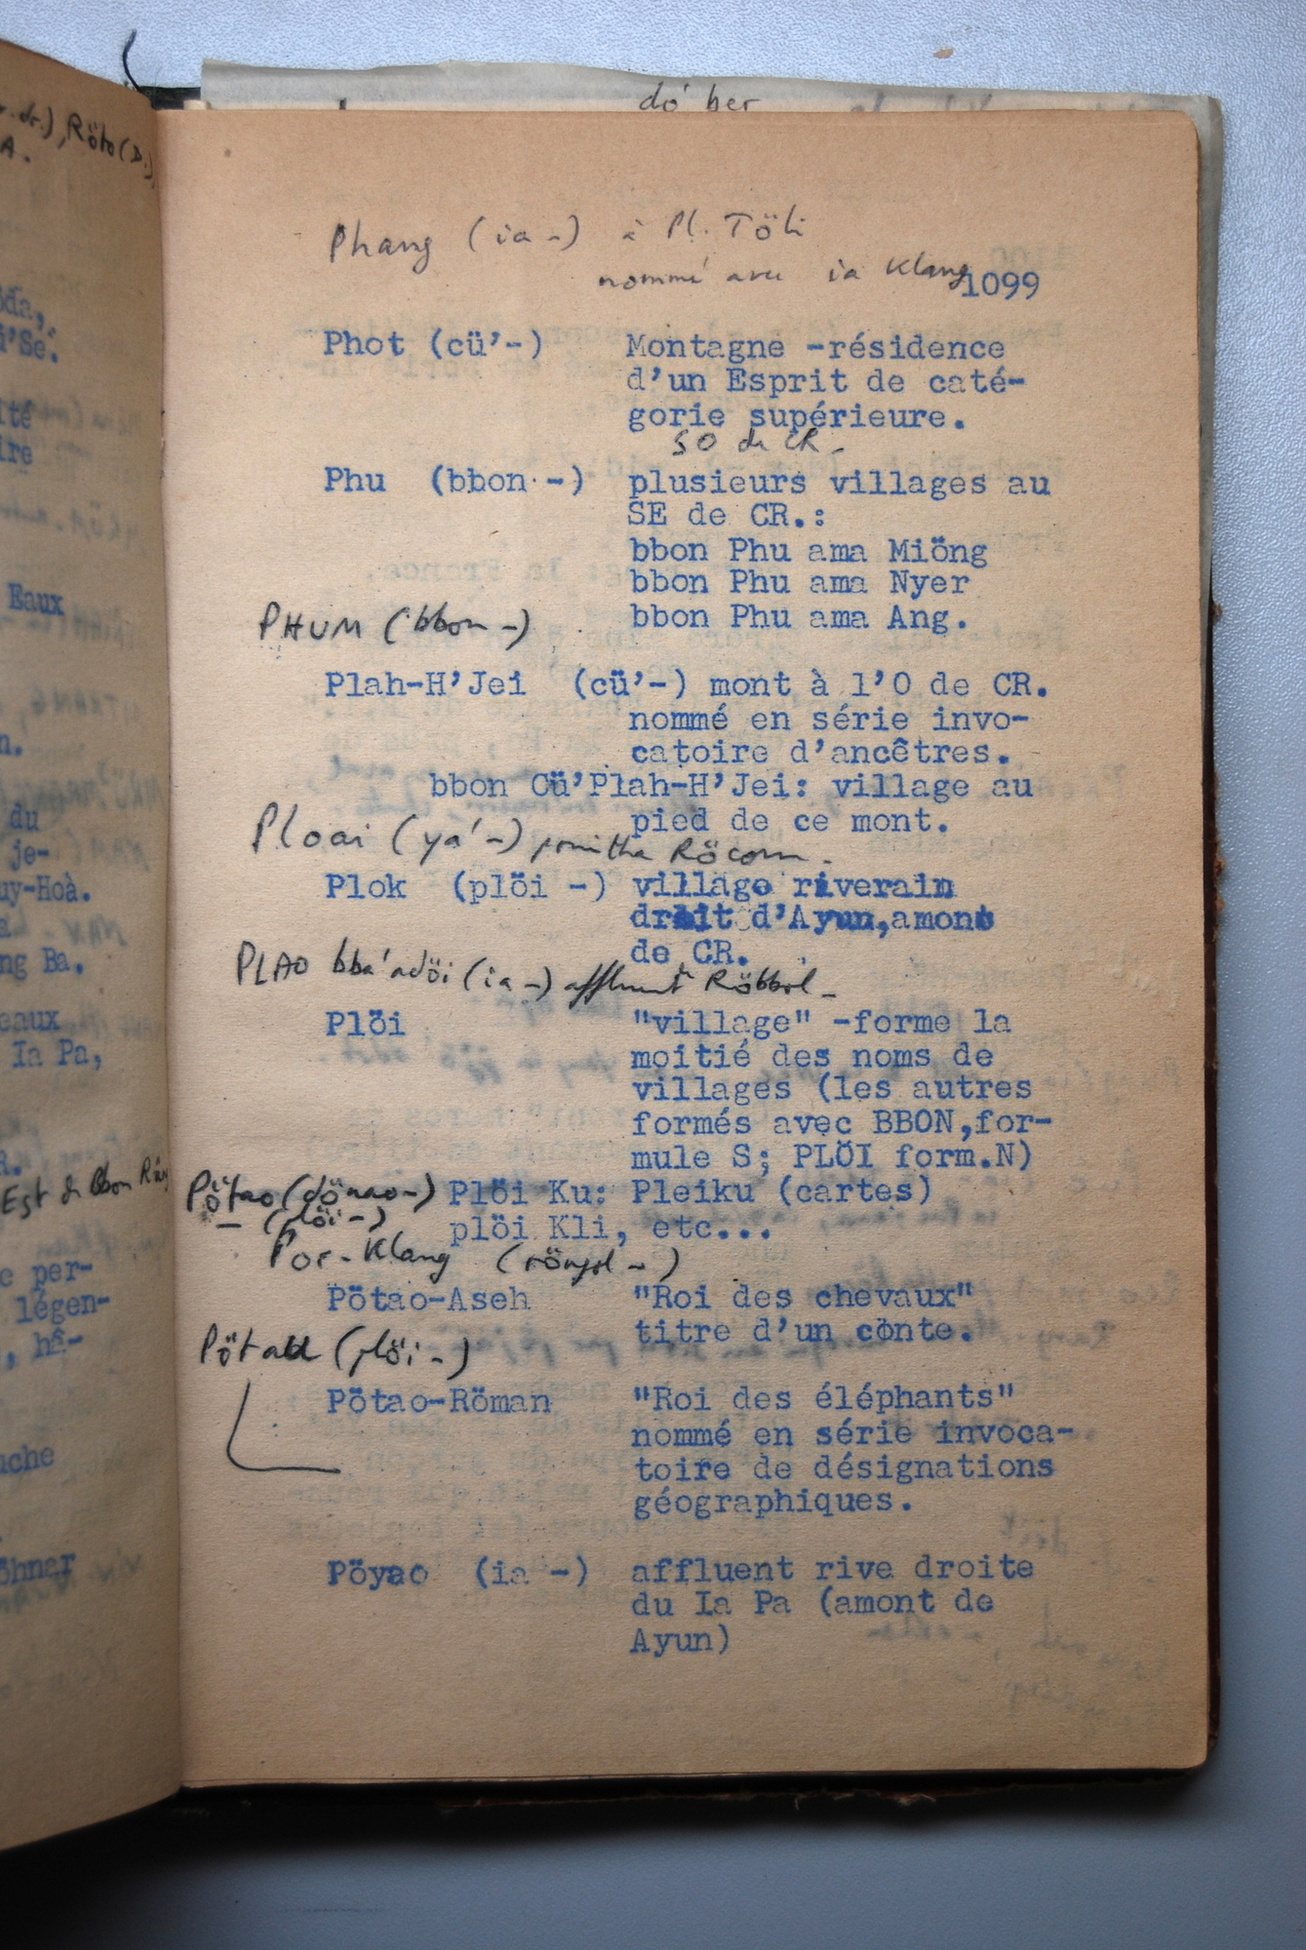 dó ber
Phang (ia -) à Pl. Töli
nommé avec ia Klang
1099
Phot (cü'-) Montagne -résidence
d'un Esprit de caté-
gorie supérieure.
SO de CR.
Phu (bbon -) plusieurs villages au
SE de CR.:
bbon Phu ama Miöng
bbon Phu ama Nyer
bbon Phu ama Ang.
PHUM (bbon -)
Plah-H'Jei (cü'-) mont à l'O de CR.
nommé en série invo-
catoire d'ancêtres.
bbon Cü'Plah-H'Jei: village au
pied de ce mont.
Ploai (ya'-) Röcom.
Plok (plöi -) village riverain
droit d'Ayun,amont
de CR.
PLAO bba'adöi (ia -) affluent Röbbol -
Plöi "village" -forme la
moitié des noms de
villages (les autres
formés avec BBON,for-
mule S; PLÖI form.N)
Pötao (dönao-) Plöi Ku: Pleiku (cartes)
— (plöi -) plöi Kli, etc...
Por-Klang
Pötao-Aseh "Roi des chevaux"
titre d'un conte.
(plöi -)
Pötao-Röman "Roi des éléphants"
nommé en série invoca-
toire de désignations
géographiques.
Pöyao (ia -) affluent rive droite
du Ia Pa (amont de
Ayun)
Röto (D.)
A.
Eaux
du
je-
uy-Hoà.
ng Ba.
Ia Pa,
Est de Bbon
per-
légen-
hâ-